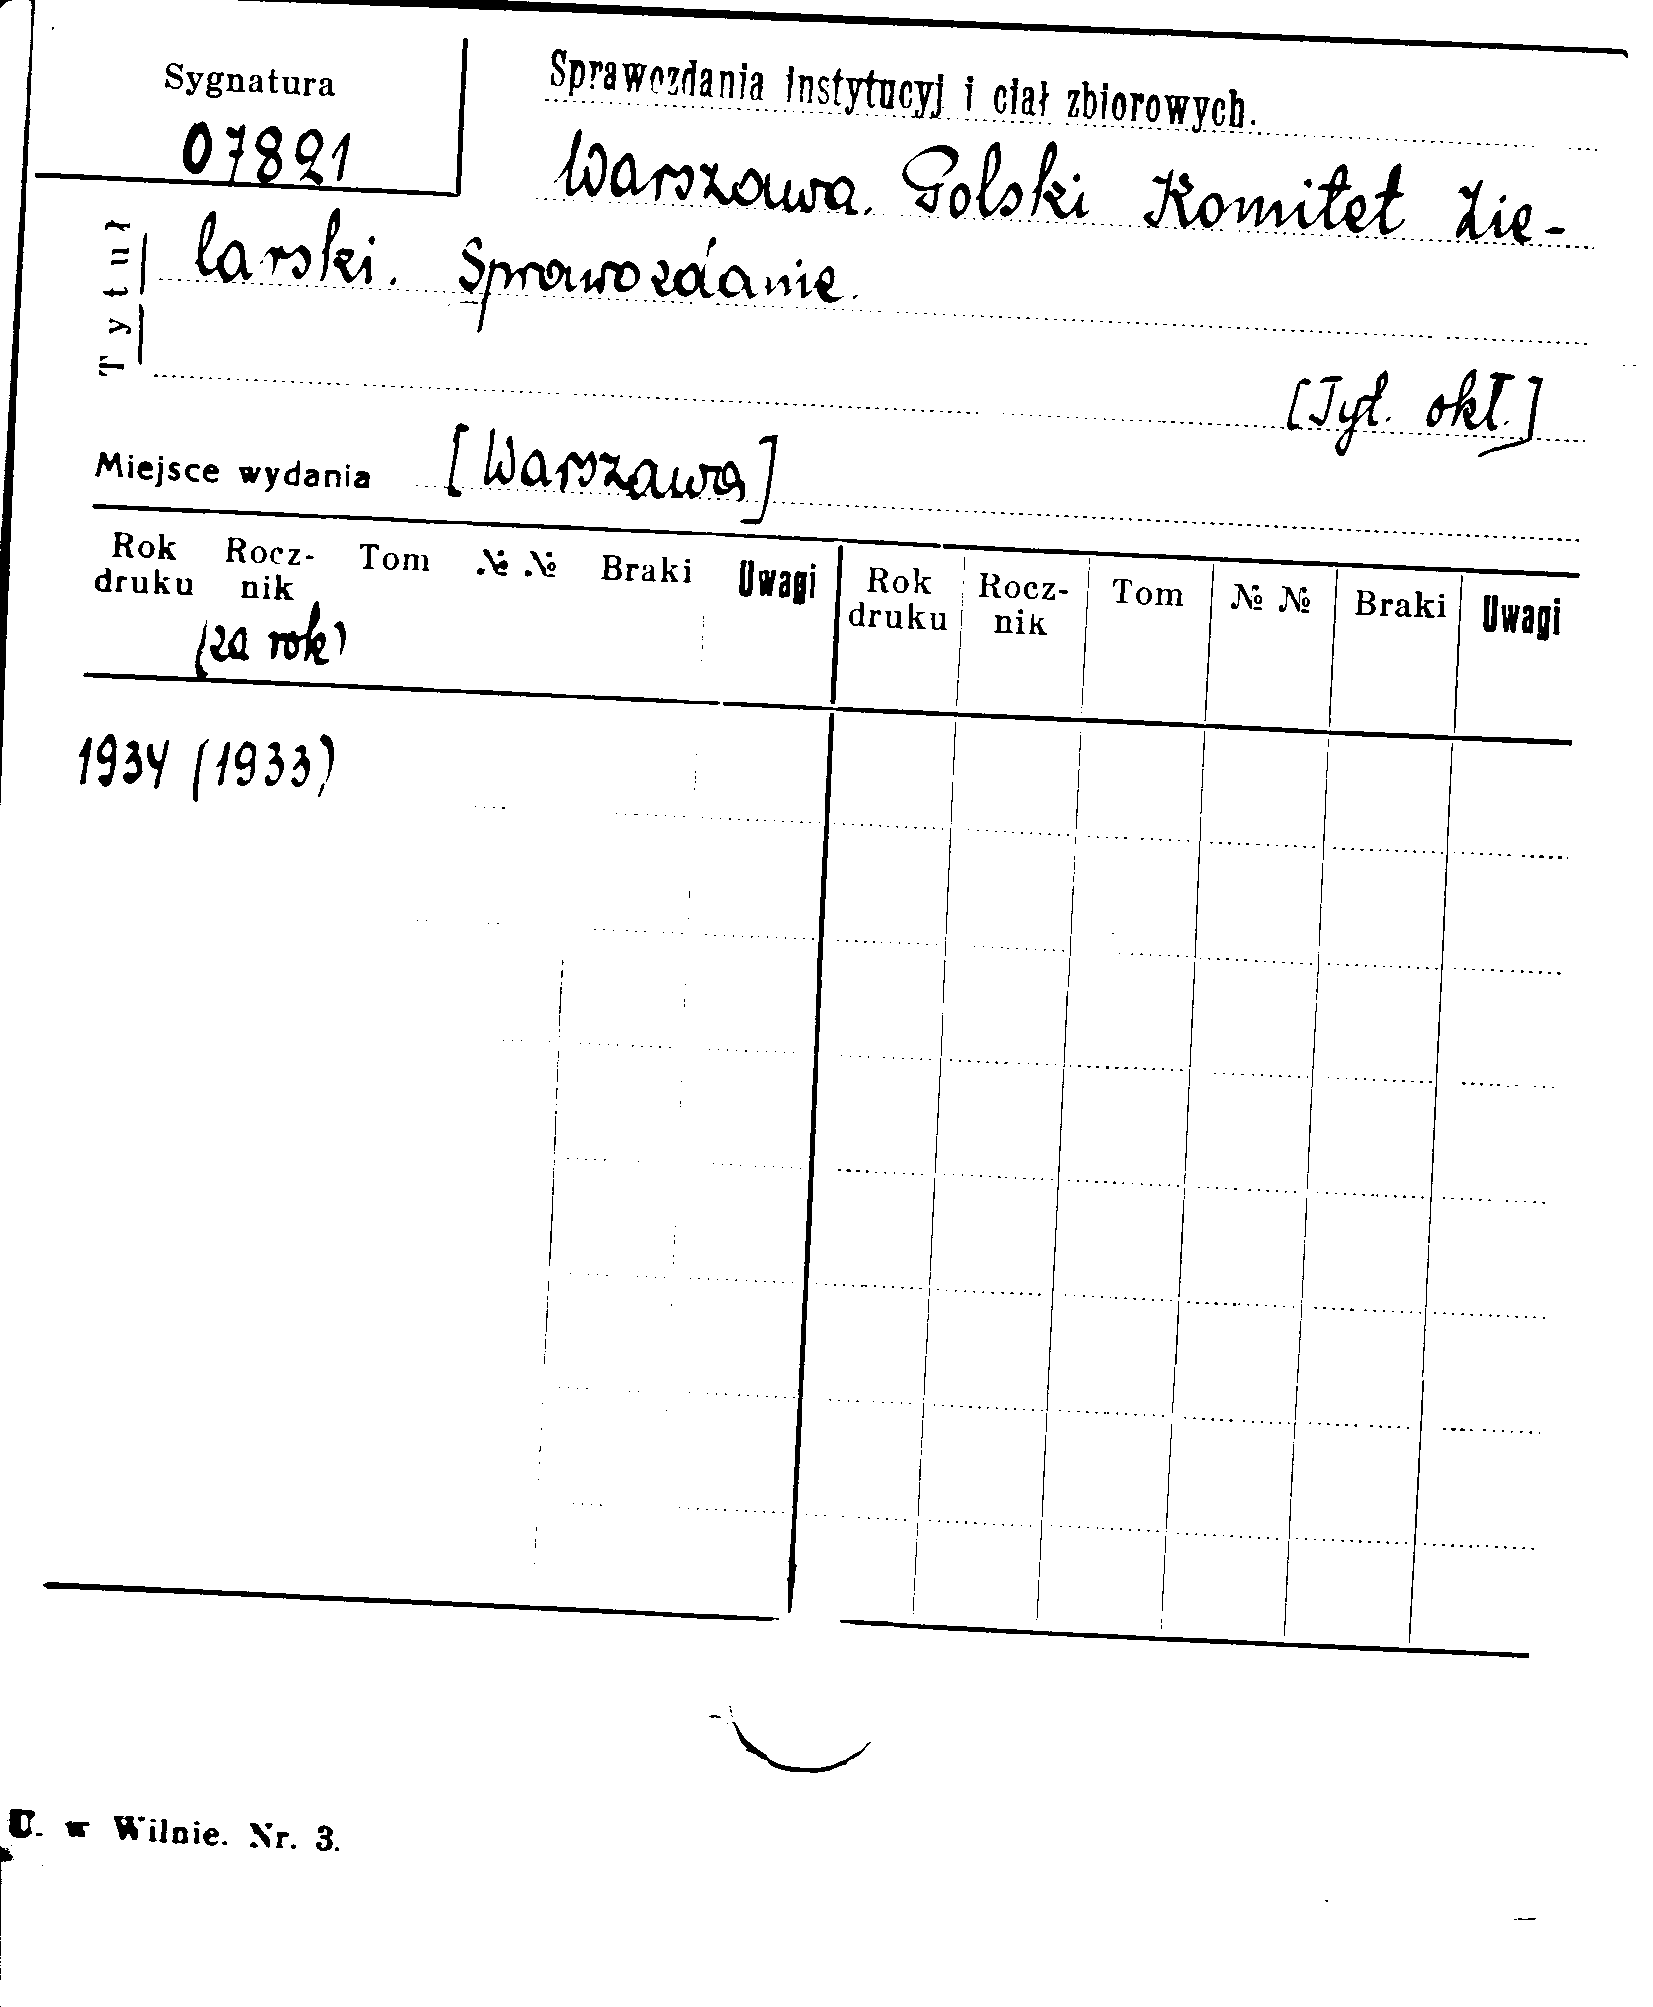 Sygnatura
07821
Sprawozdania instytucyj i ciał zbiorowych.
Warszawa. Polski Komitet Zie-
larski. Sprawozdanie.
Tytuł
[Tyt. okł.]
Miejsce wydania [Warszawa]
Rok druku Rocz-nik Tom № № Braki Uwagi Rok druku Rocz-nik Tom № № Braki Uwagi
(za rok)
1934 (1933)
U. w Wilnie. Nr. 3.